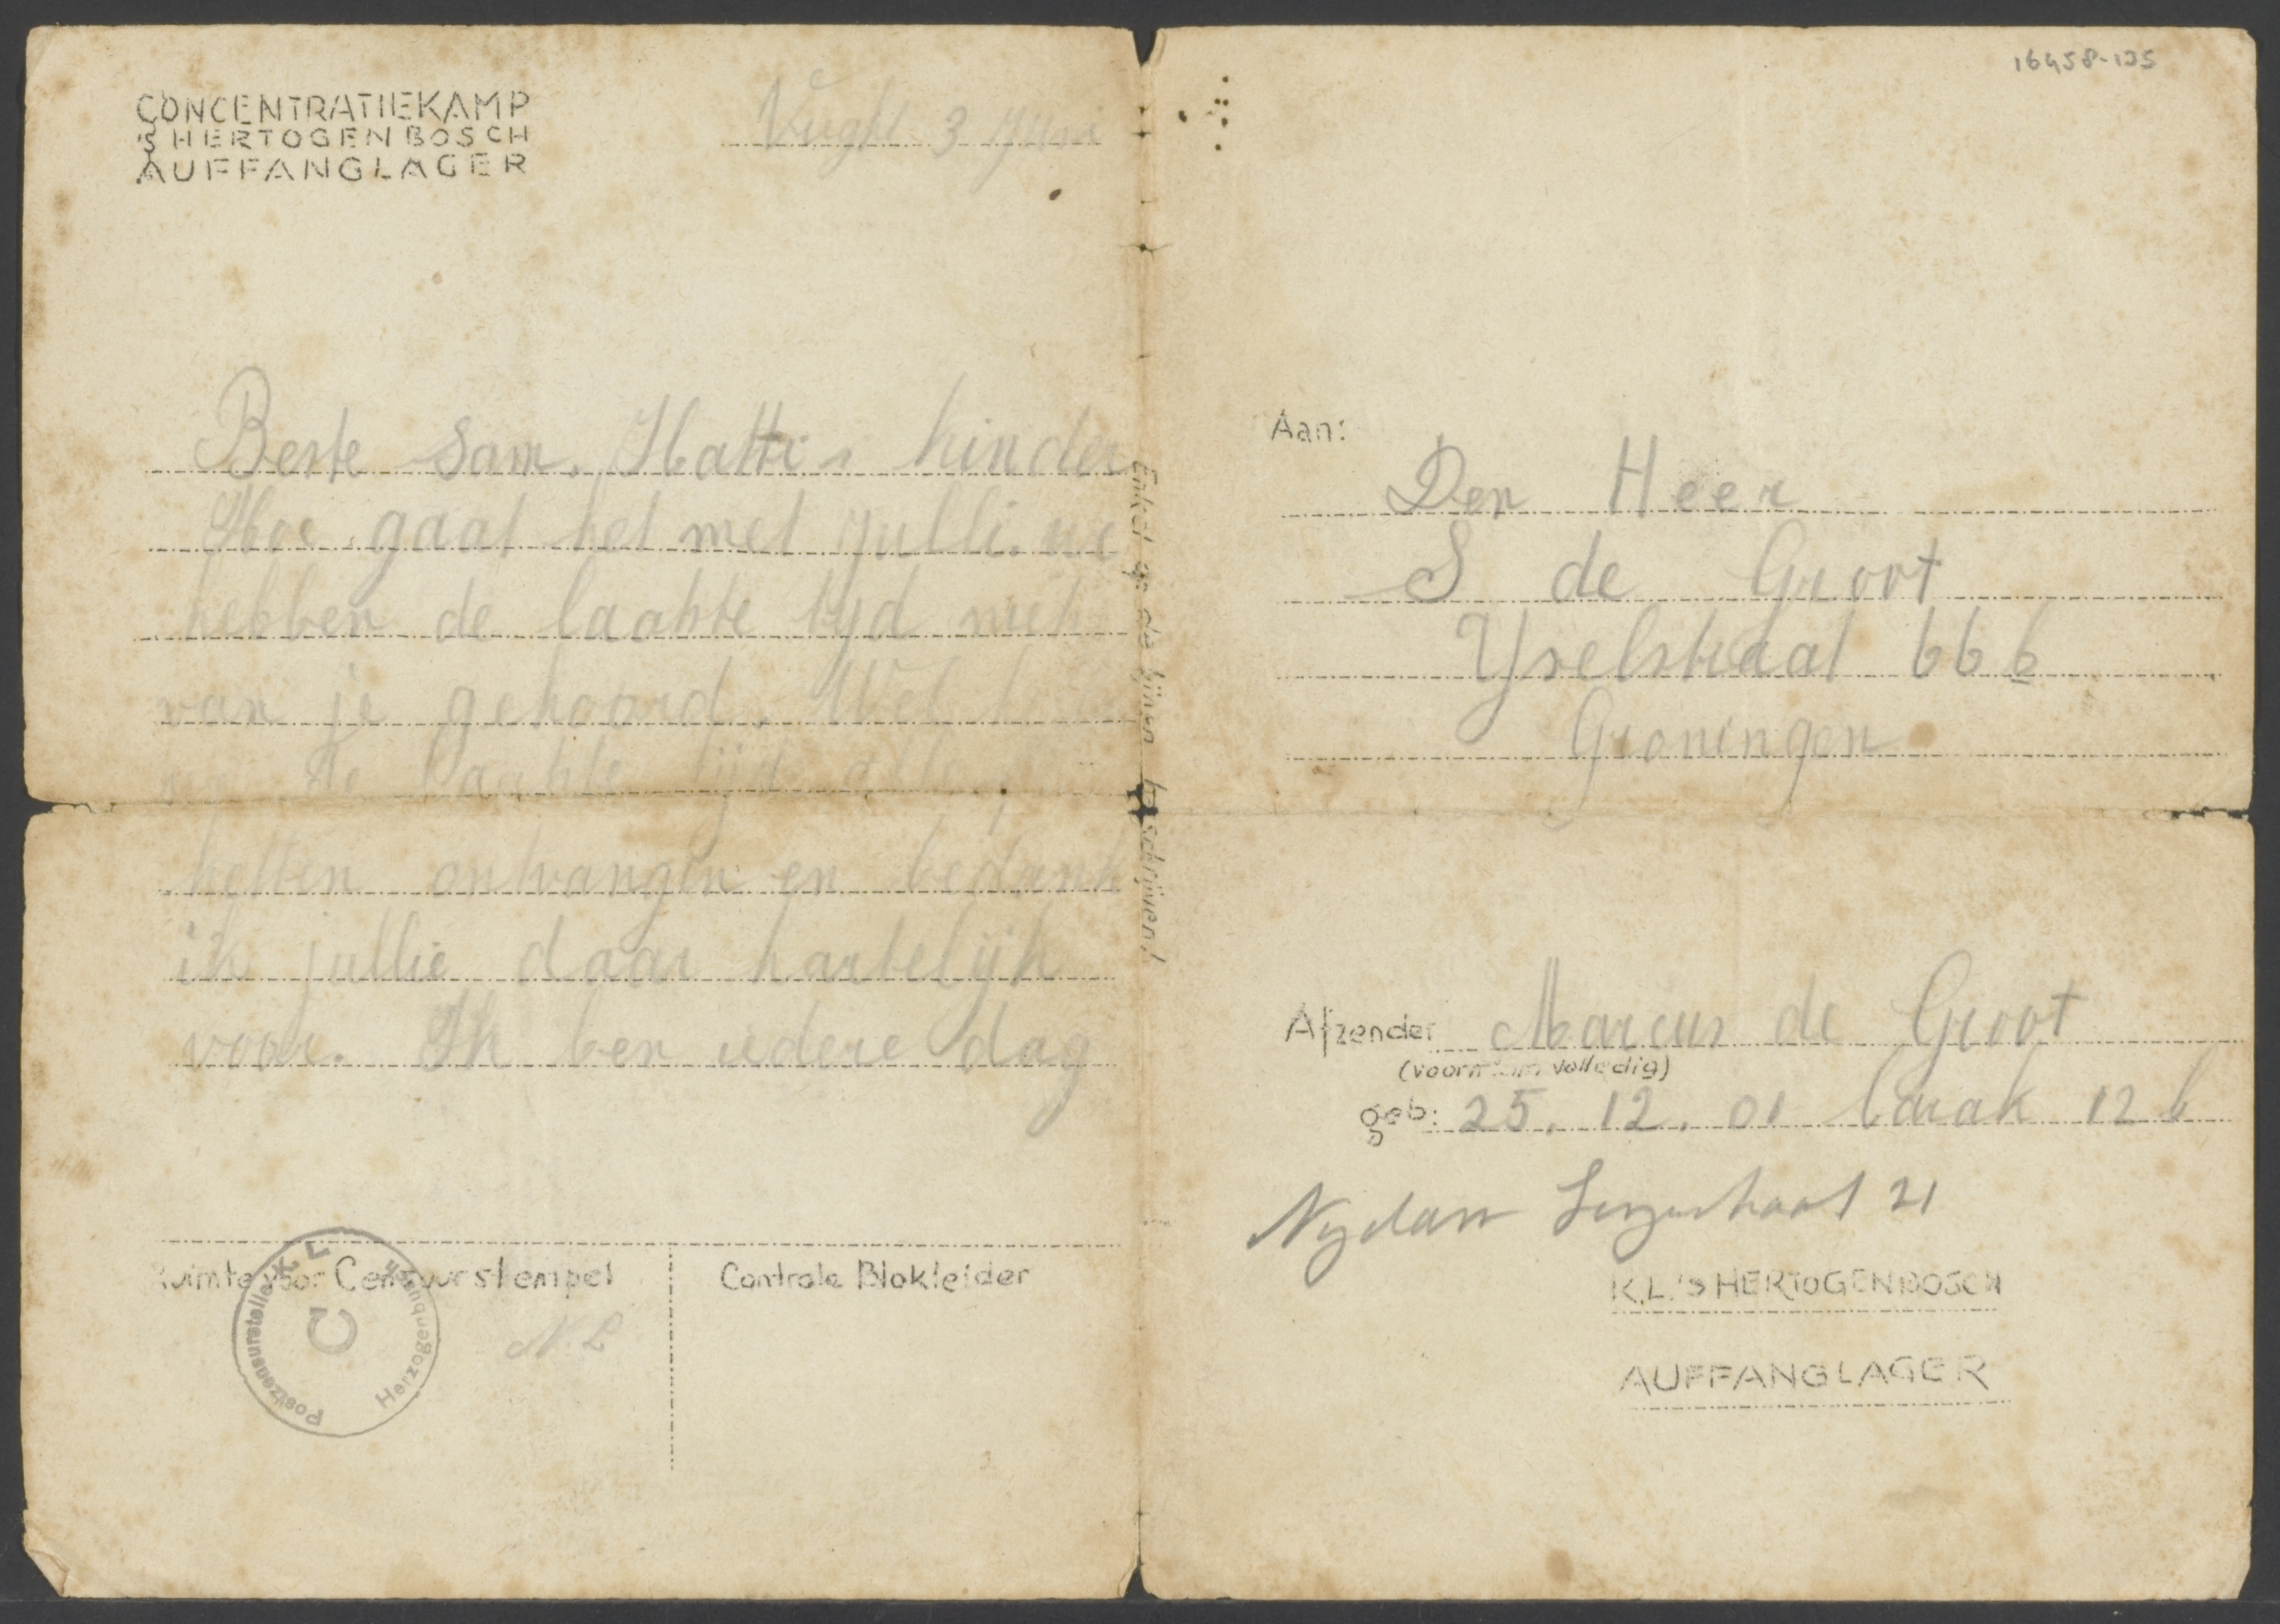 CONCENTRATIEKAMP
'S HERTOGENBOSCH
AUFFANGLAGER
Vught 3 Juni
Beste Sam. Hatti kinder
Hoe gaat het met julli. we
hebben de laatste tyd
van je gehoord.
de laatste tijd
hebben ontvangen en bedank
ik jullie daar hartelijk
voor. Ik ben iedere dag
Ruimte voor Censuurstempel
Controle Blokleider
K.L.
Postzensurstelle
Herzogenbusch
C
Enkel op de lijnen beschrijven!
16458-135
Aan:
Den Heer
S de Groot
Yselstraat 66 b
Groningen
Afzender Marcus de Groot
(voornaam volledig)
geb: 25. 12. 01 barak 12 b
21
K.L. 'S HERTOGENBOSCH
AUFFANGLAGER